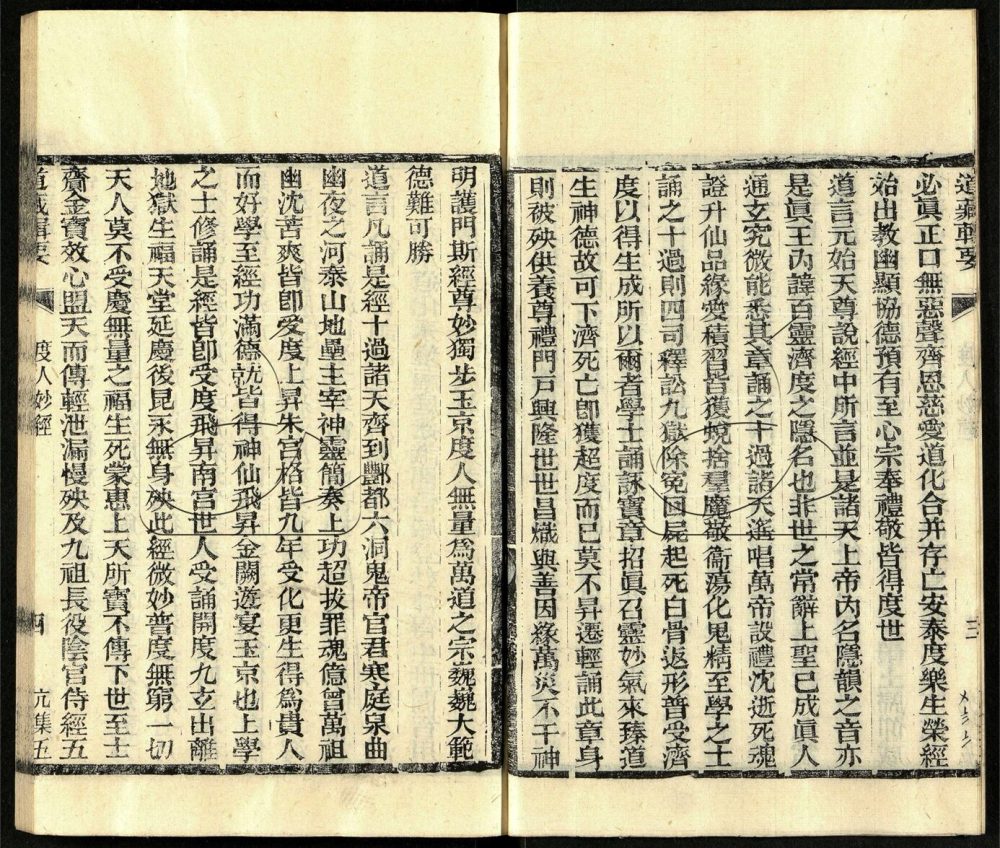 道藏輯要
必眞正口無惡聲齊恩慈愛道化合并存亡安泰度樂生榮經
始出教幽顯協德預有至心宗奉禮敬皆得度世
道言元始天尊說經中所言並是諸天上帝內名隱韻之音亦
是眞王內諱百靈濟度之隱名也非世之常辭上聖已成眞人
通玄究微能悉其章誦之十過諸天遙唱萬帝設禮沈逝死魂
證升仙品緣愛積習皆獲蛻捨羣魔敬衞蕩化鬼精至學之士
誦之十過則四司釋訟九獄除寃囘屍起死白骨返形普受濟
度以得生成所以爾者學士誦詠寶章招眞召靈妙氣來臻道
生神德故可下濟死亡卽獲超度而已莫不昇遷輕誦此章身
則被殃供養尊禮門戸興隆世世昌熾與善因緣萬災不干神
明護門斯經尊妙獨步玉京度人無量爲萬道之宗巍巍大範
德難可勝
道言凡誦是經十過諸天齊到酆都六洞鬼帝官君寒庭泉曲
幽夜之河泰山地壘主宰神靈簡奏上功超拔罪魂億曾萬祖
幽沈苦爽皆卽受度上昇朱宮格皆九年受化更生得爲貴人
而好學至經功滿德就皆得神仙飛昇金闕遊宴玉京也上學
之士修誦是經皆卽受度飛昇南宮世人受誦開度九玄出離
地獄生福天堂延慶後昆永無身殃此經微妙普度無窮一切
天人莫不受慶無量之福生死蒙惠上天所寶不傳下世至士
齎金寶效心盟天而傳輕泄漏慢殃及九祖長役陰官侍經五
道藏輯要 度人妙經 四 元集五